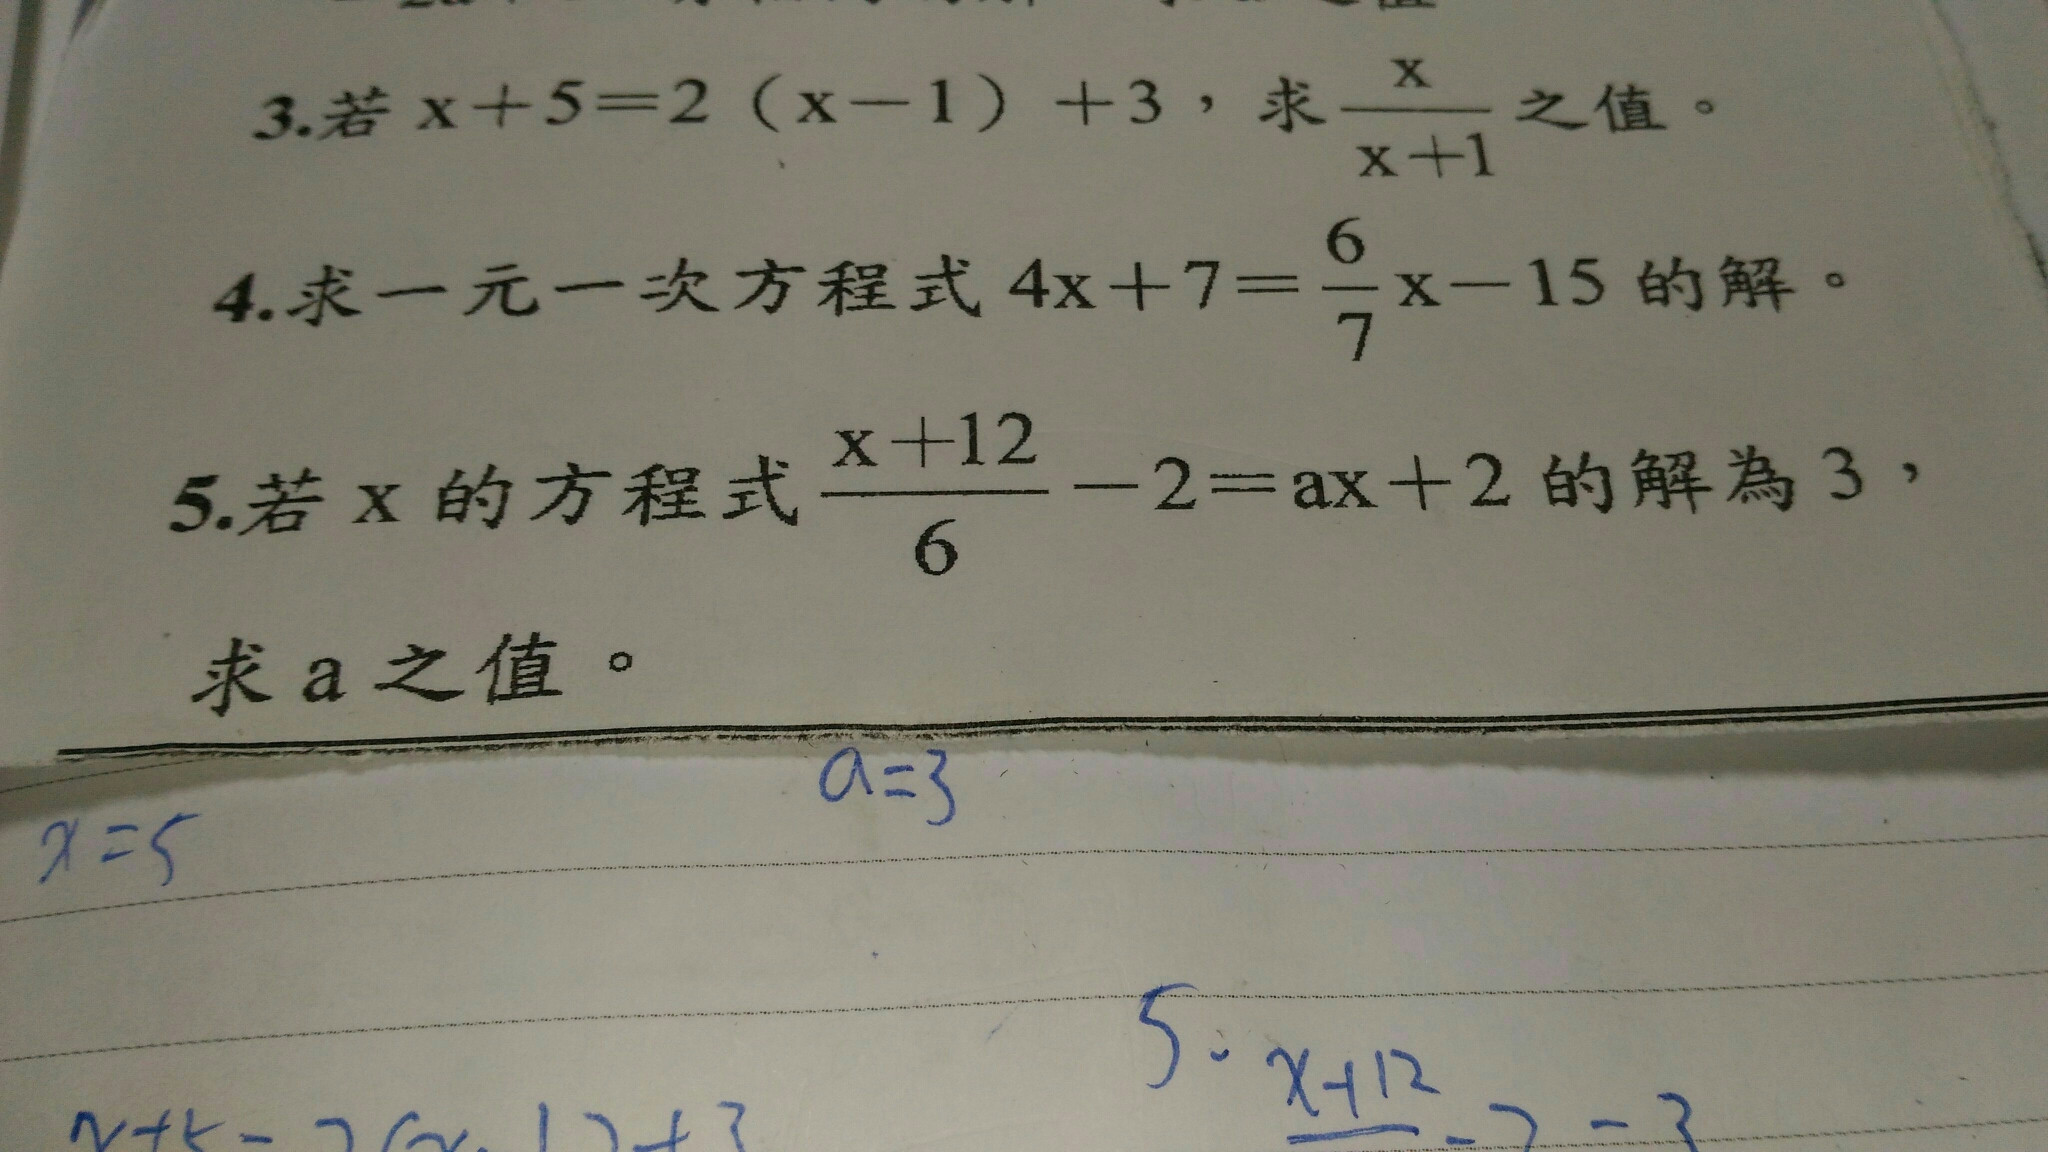 3.若 x＋5＝2（x－1）＋3，求 x/x＋1 之值。
4.求一元一次方程式 4x＋7＝6/7 x－15 的解。
5.若 x 的方程式 x＋12/6 －2＝ax＋2 的解為 3，
求 a 之值。
a=3
x=5
5. x+12